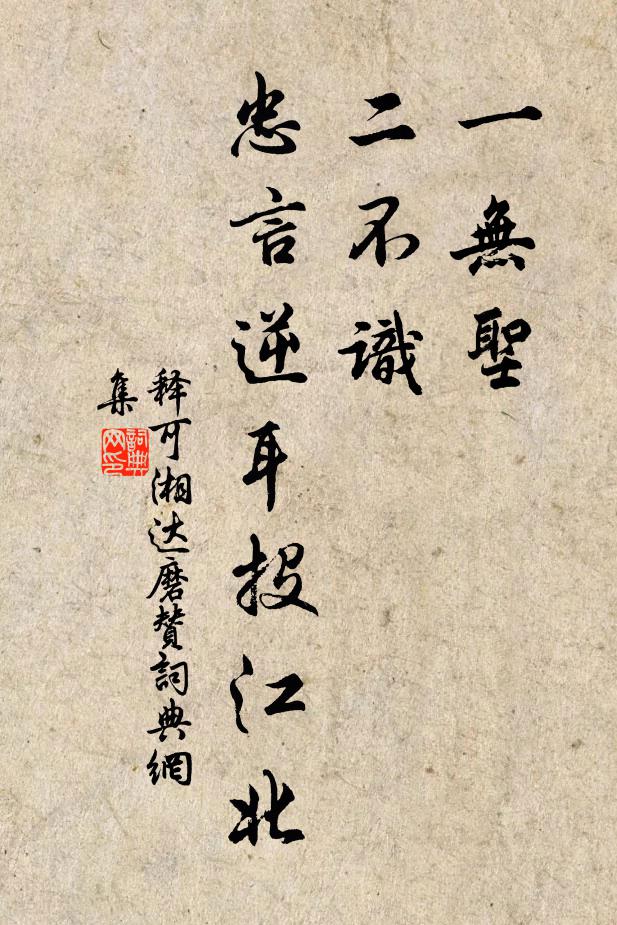 一無聖
二不識
忠言逆耳投江北
释可湘达磨贊詞典網
集
詞典
网印